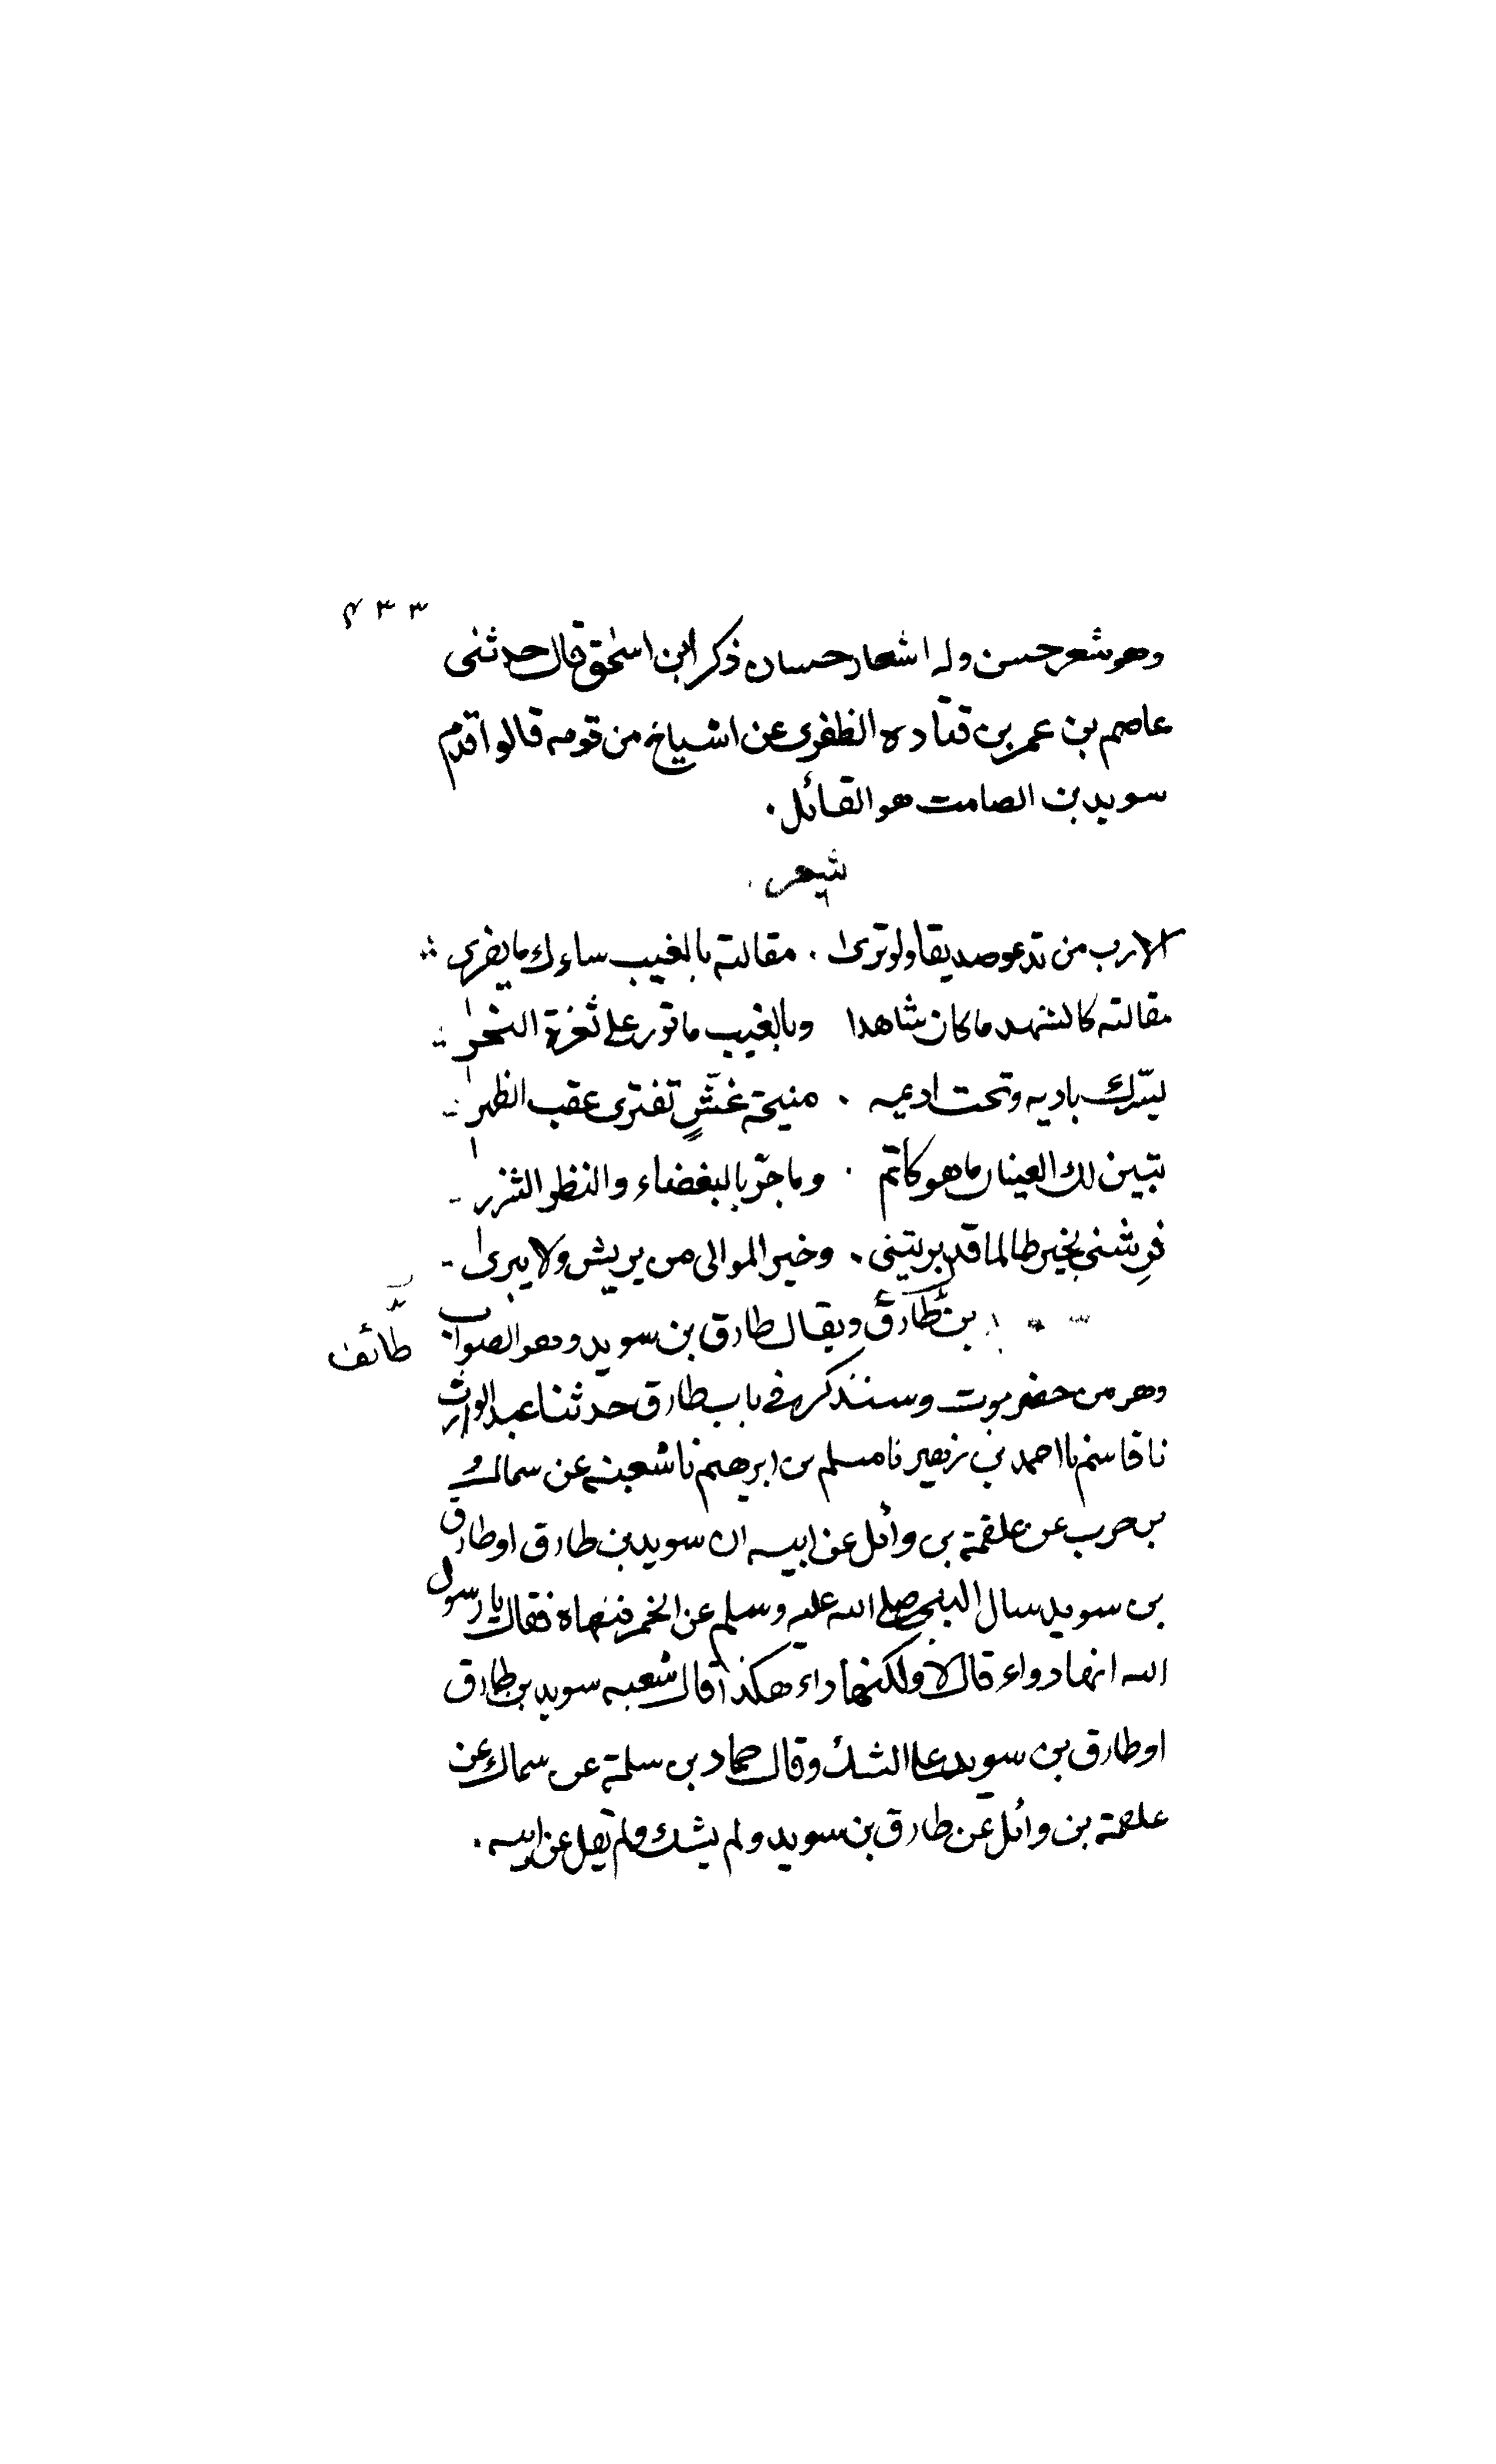 ٤٣٣
وهو شعر حسن وله اشعار حسان ذكر ابن اسحق قال حدثنى
عاصم بن عمر بن قتادة الظفرى عن اشياخ من قومه قالوا قدم
سويد بن الصامت هو القائل.
شعر
الا رب من تدعو صديقا ولو ترى . مقالته بالغيب ساءك ما يفرى
مقالته كالشهد ما كان شاهدا وبالغيب ماثور على ثغرة النحر
يسّرك باديه وتحت اديمه . منيحة غشٍّ تفترى عقب الظهر
تبين لك العينان ما هو كاتم . وما جنّ بالبغضاء والنظر الشزر
فرِشنى بخير طالما قد بريتنى . وخير الموالى من يريش ولا يبرى
بن طارق ويقال طارق بن سويد وهو الصواب
طائف
وهو من حضرموت وسنذكره فى باب طارق حدثنا عبد الوارث
نا قاسم نا احمد بن زهير نا مسلم بن ابرهيم نا شعبة عن سماك
بن حرب عن علقمة بن وائل عن ابيه ان سويد بن طارق او طارق
بن سويد سال النبى صلى الله عليه وسلم عن الخمر فنهاه فقال يا رسول
الله انها دواء قال لا ولكنها داء هكذا قال شعبه سويد بن طارق
او طارق بن سويد على الشك وقال حماد بن سلمة عن سماك عن
علقمة بن وائل عن طارق بن سويد ولم يشك ولم يقل عن ابيه.